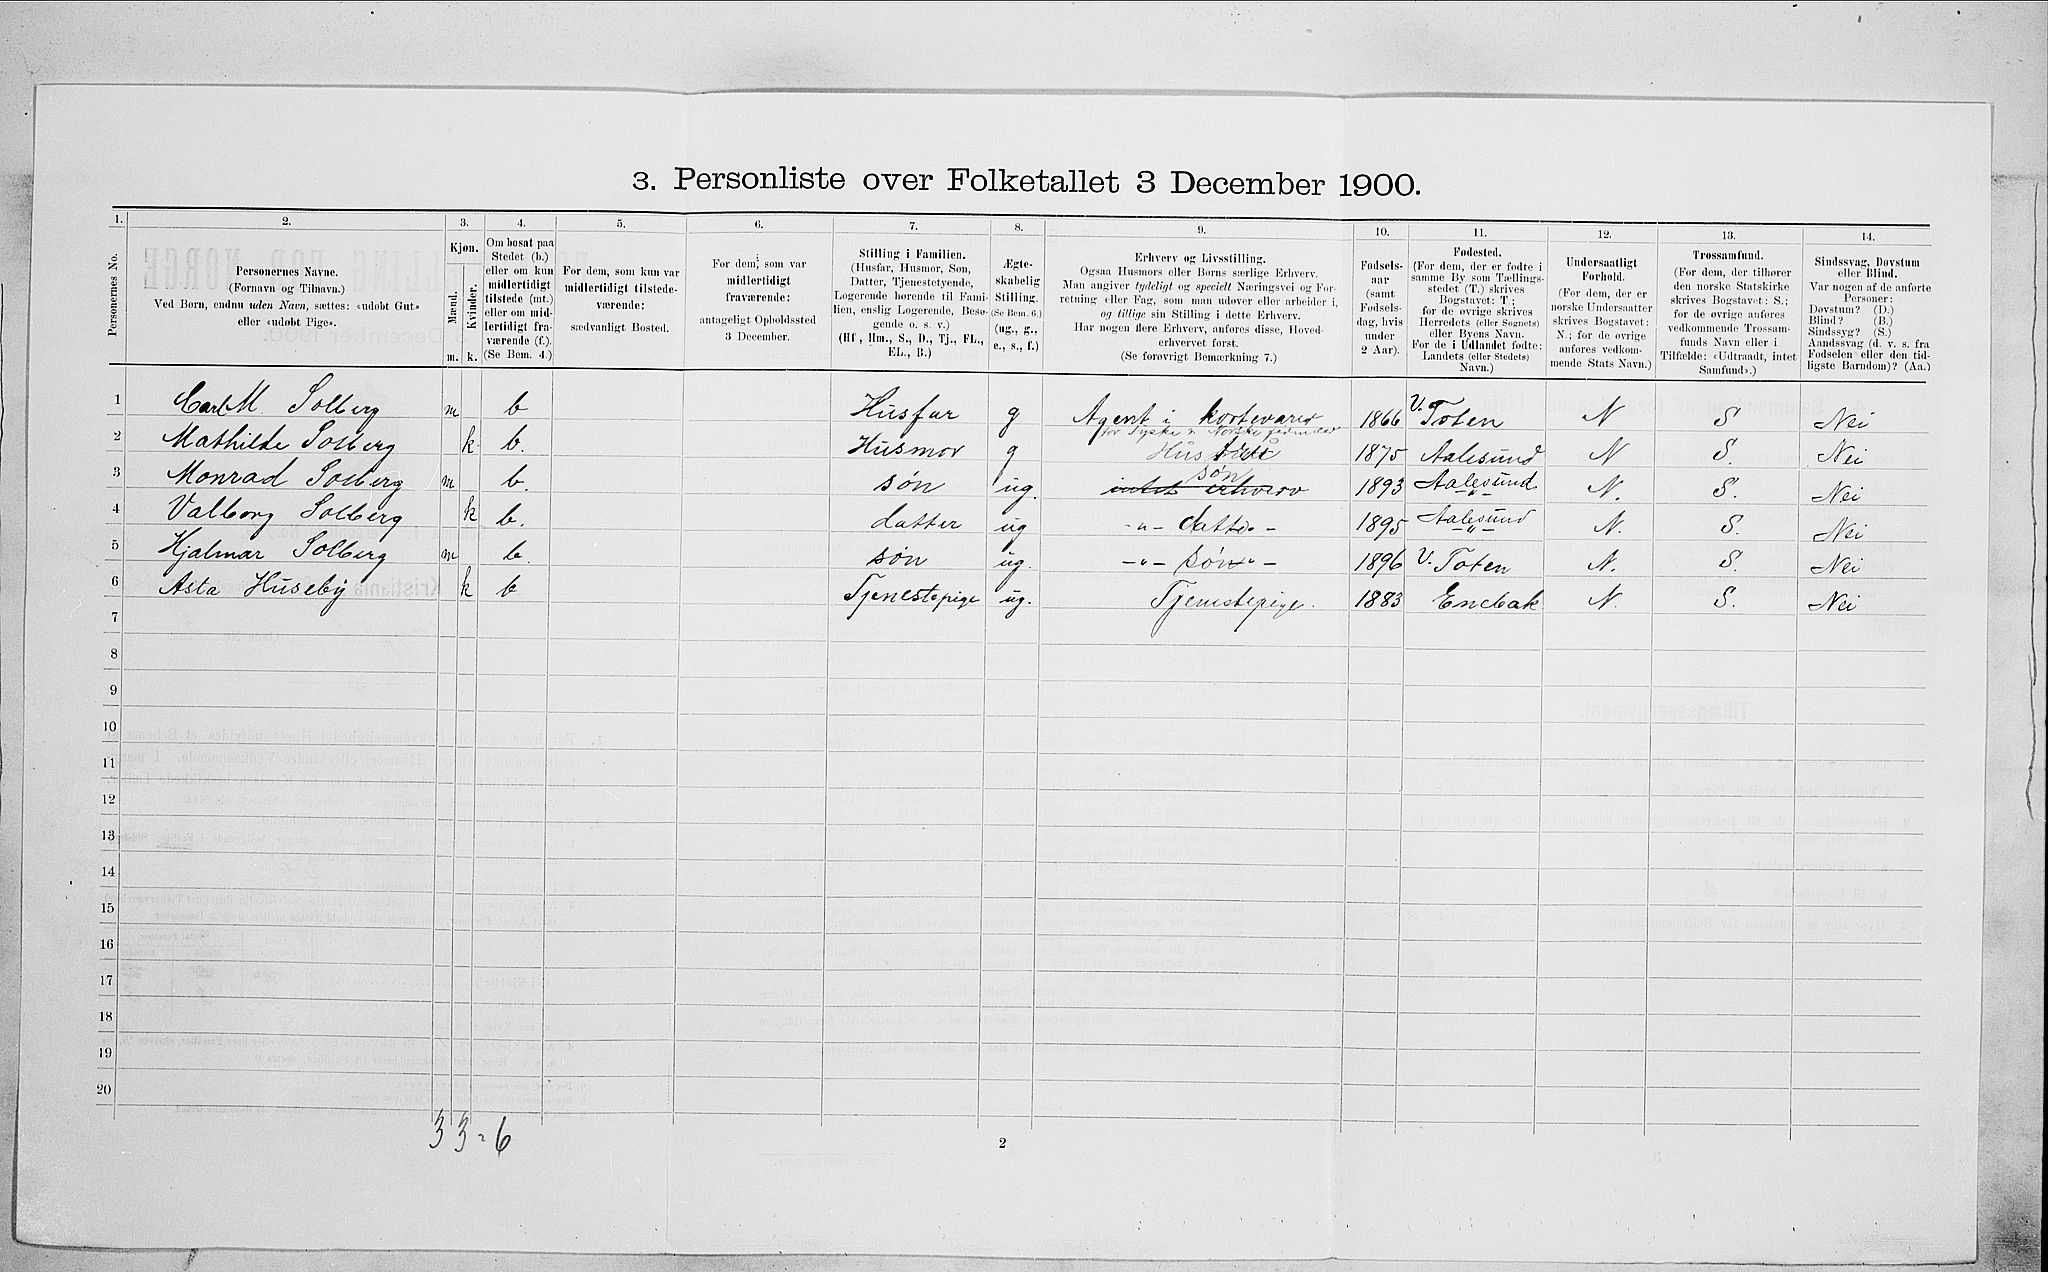 3. Personliste over Folketallet 3 December 1900.
1. 2. 3. 4. 5. 6. 7. 8. 9. 10. 11. 12. 13. 14.
Personernes No.
Personernes Navne.
(Fornavn og Tilnavn.)
Ved Børn, endnu uden Navn, sættes: «udøbt Gut»
eller «udøbt Pige».
Kjøn.
Mænd.
Kvinder.
m. k.
Om bosat paa
Stedet (b.)
eller om kun
midlertidigt
tilstede (mt.)
eller om mid-
lertidigt fra-
værende (f.).
(Se Bem. 4.)
For dem, som kun var
midlertidigt tilstede-
værende:
sædvanligt Bosted.
For dem, som var
midlertidigt
fraværende:
antageligt Opholdssted
3 December.
Stilling i Familien.
(Husfar, Husmor, Søn,
Datter, Tjenestetyende,
Logerende hørende til Fami-
lien, enslig Logerende, Besø-
gende o. s. v.)
(Hf., Hm., S., D., Tj., FL.,
EL., B.)
Ægte-
skabelig
Stilling.
(Se Bem. 6.)
(ug., g.,
e., s., f.)
Erhverv og Livsstilling.
Ogsaa Husmors eller Børns særlige Erhverv.
Man angiver tydeligt og specielt Næringsvei og For-
retning eller Fag, som man udøver eller arbeider i,
og tillige sin Stilling i dette Erhverv.
Har nogen flere Erhverv, anføres disse, Hoved-
erhvervet først.
(Se forøvrigt Bemærkning 7.)
Fødsels-
aar
(samt
Fødsels-
dag, hvis
under
2 Aar).
Fødested.
(For dem, der er fødte i
samme By som Tællings-
stedet (T.) skrives
Bogstavet: T.;
for de øvrige skrives
Herredets (eller Sognets)
eller Byens Navn.
For de i Udlandet fødte:
Landets (eller Stedets)
Navn.)
Undersaatligt
Forhold.
(For dem, der er
norske Undersaatter
skrives Bogstavet:
N.; for de øvrige
anføres vedkom-
mende Stats Navn.)
Trossamfund.
(For dem, der tilhører
den norske Statskirke
skrives Bogstavet: S.;
for de øvrige anføres
vedkommende Trossam-
funds Navn eller i
Tilfælde: «Udtraadt, intet
Samfund».)
Sindssvag, Døvstum
eller Blind.
Var nogen af de anførte
Personer:
Døvstum? (D.)
Blind? (B.)
Sindssyg? (S.)
Aandssvag (d. v. s. fra
Fødselen eller den tid-
ligste Barndom)? (Aa.)
1 Carl M Solberg m b Husfar g Agent i kortevarer 1866 V. Toten N S Nei
for Tyske & Norske firmaer
2 Mathilde Solberg k b. Husmor g Hustru 1875 Aalesund N S. Nei
3 Monrad Solberg m b. søn ug. intet erhverv søn 1893 Aalesund N. S. Nei
4 Valborg Solberg k b. datter ug -"- datter - 1895 Aalesund N. S. Nei
5 Hjalmar Solberg m b. søn ug. -"- søn "- 1896 V. Toten N. S. Nei
6 Asta Huseby k b Tjenestepige ug. Tjenestepige. 1883 Enebak N. S. Nei
7
8
9
10
11
12
13
14
15
16
17
18
19
20
3 3 = 6
2